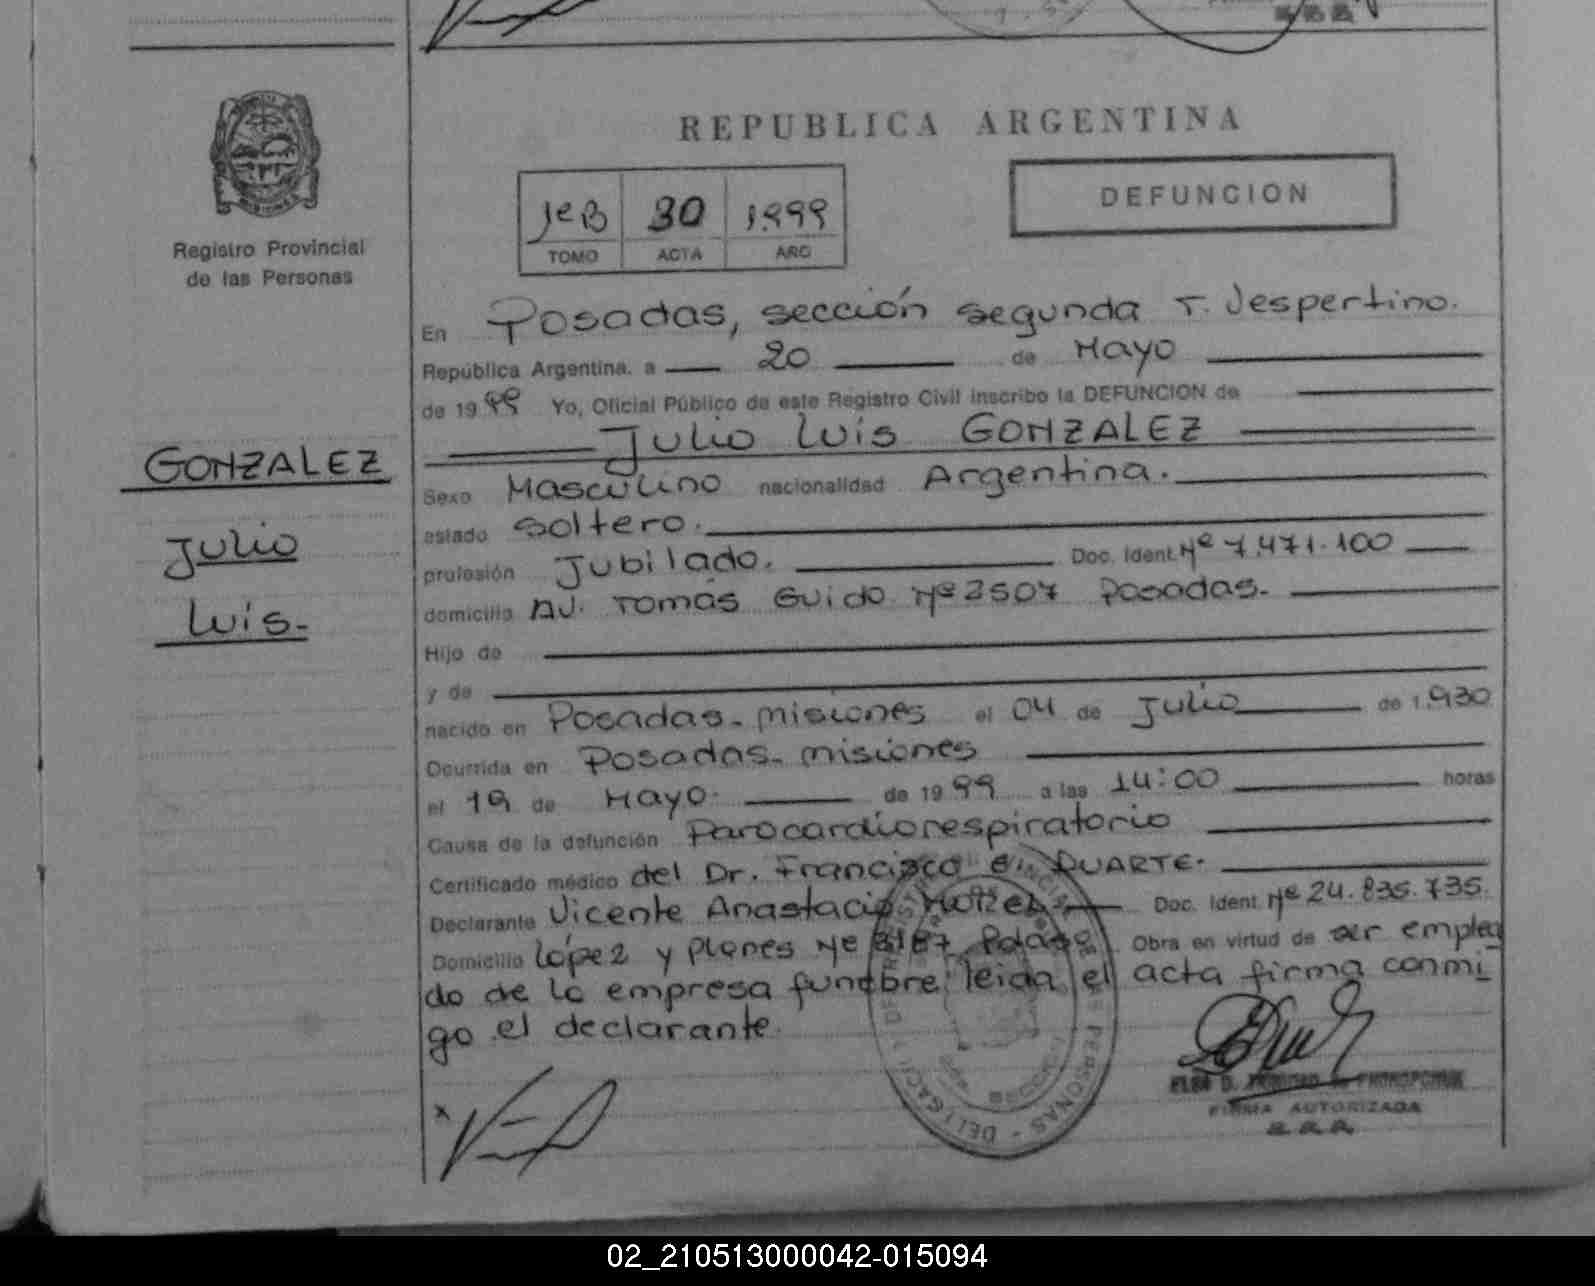 REPUBLICA ARGENTINA
1eB 30 1.999
TOMO ACTA AÑO
DEFUNCION
Registro Provincial
de las Personas
GONZALEZ
Julio
Luis-
En Posadas, sección segunda T. Vespertino.
República Argentina. a 20 de Mayo
de 1999 Yo, Oficial Público de este Registro Civil inscribo la DEFUNCION de
Julio Luis GONZALEZ
Sexo Masculino nacionalidad Argentina.
estado Soltero.
profesión Jubilado. Doc. Ident. Nº 7.471.100
domicilio AV. Tomás Guido Nº 2507 Posadas.
Hijo de
y de
nacido en Posadas-misiones el 04 de Julio de 1.930
Ocurrida en Posadas-misiones
el 19 de Mayo. de 1999 a las 14:00 horas
Causa de la defunción Parocardiorespiratorio
Certificado médico del Dr. Francisco DUARTE.
Declarante Vicente Anastacio Doc. Ident. Nº 24.835.735.
Domicilio López y Planes Nº Obra en virtud de ser emplea
do de la empresa funebre leida el acta firma conmi
go el declarante.
FIRMA AUTORIZADA
02_210513000042-015094